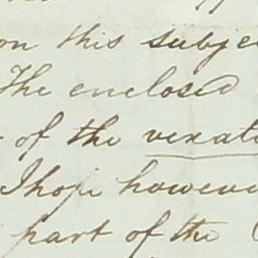 on this subje
The enclosed
of the vexat
I hope howeve
part of the